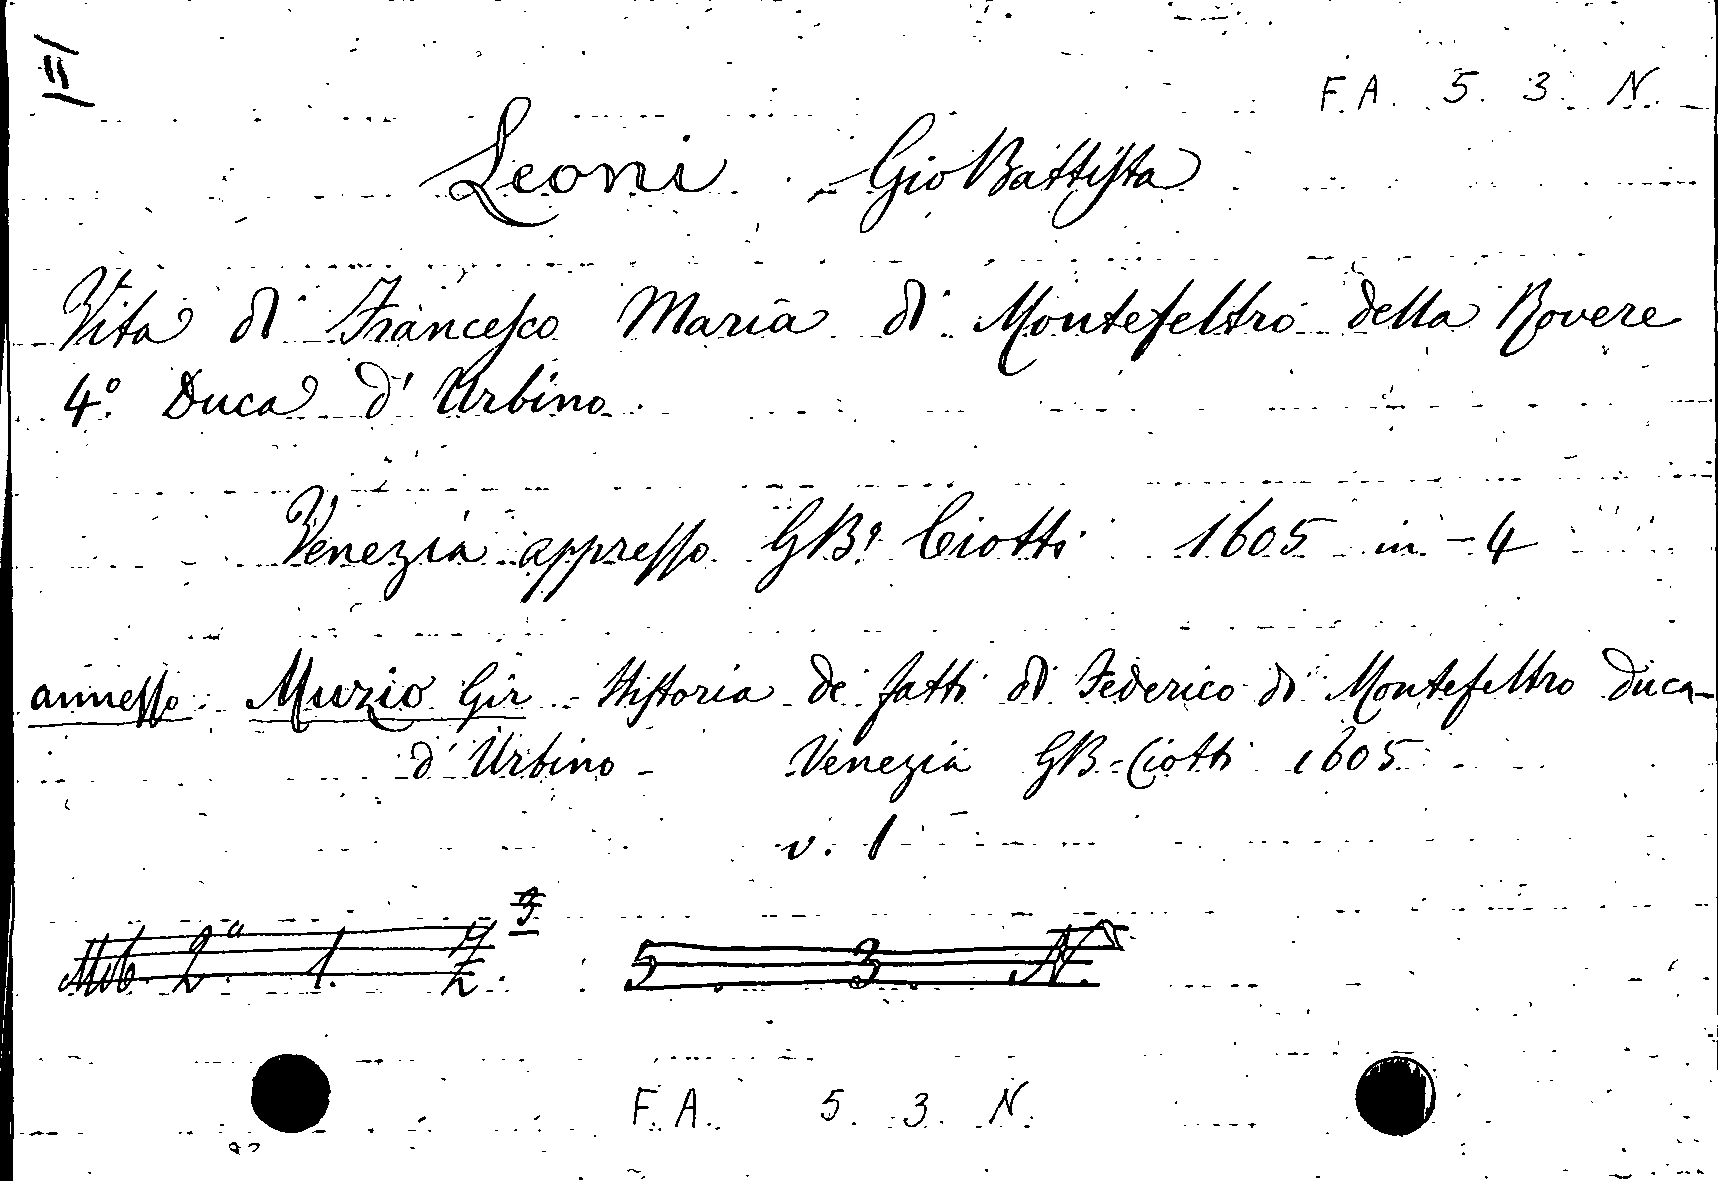 F. A. 5. 3. N.
Leoni - Gio Battista
Vita di Francesco Maria di Montefeltro della Rovere
4.º Duca d' Urbino
Venezia appresso GBª Ciotti 1605 in - 4
annesso. Muzio Gir - Historia de fatti di Federico di Montefeltro Duca
d' Urbino - Venezia GB - Ciotti 1605
v. 1
Mob. 2ª 1. 5. 3. N.
F. A. 5. 3. N.